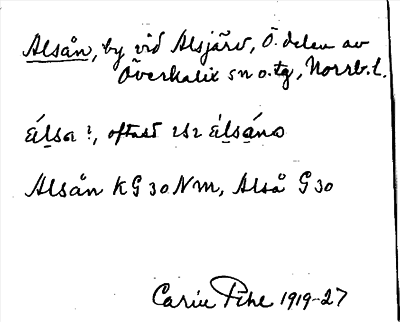 Alsån, by vid Alsjärv, Ö. delen av
Överkalix sn o. tg, Norrb. l.
oftast
Alsån KG 30 Nm, Alså G 30
Carin Pihl 1919-27